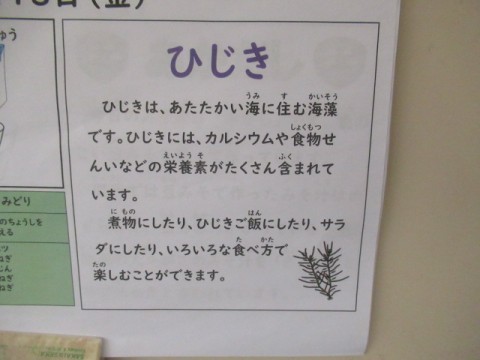 日(金)
ゅう
みどり
のちょうしを
える
ひじき
ひじきは、あたたかい海に住む海藻
です。ひじきには、カルシウムや食物せ
んいなどの栄養素がたくさん含まれて
います。
煮物にしたり、ひじきご飯にしたり、サラ
ダにしたり、いろいろな食べ方で
楽しむことができます。